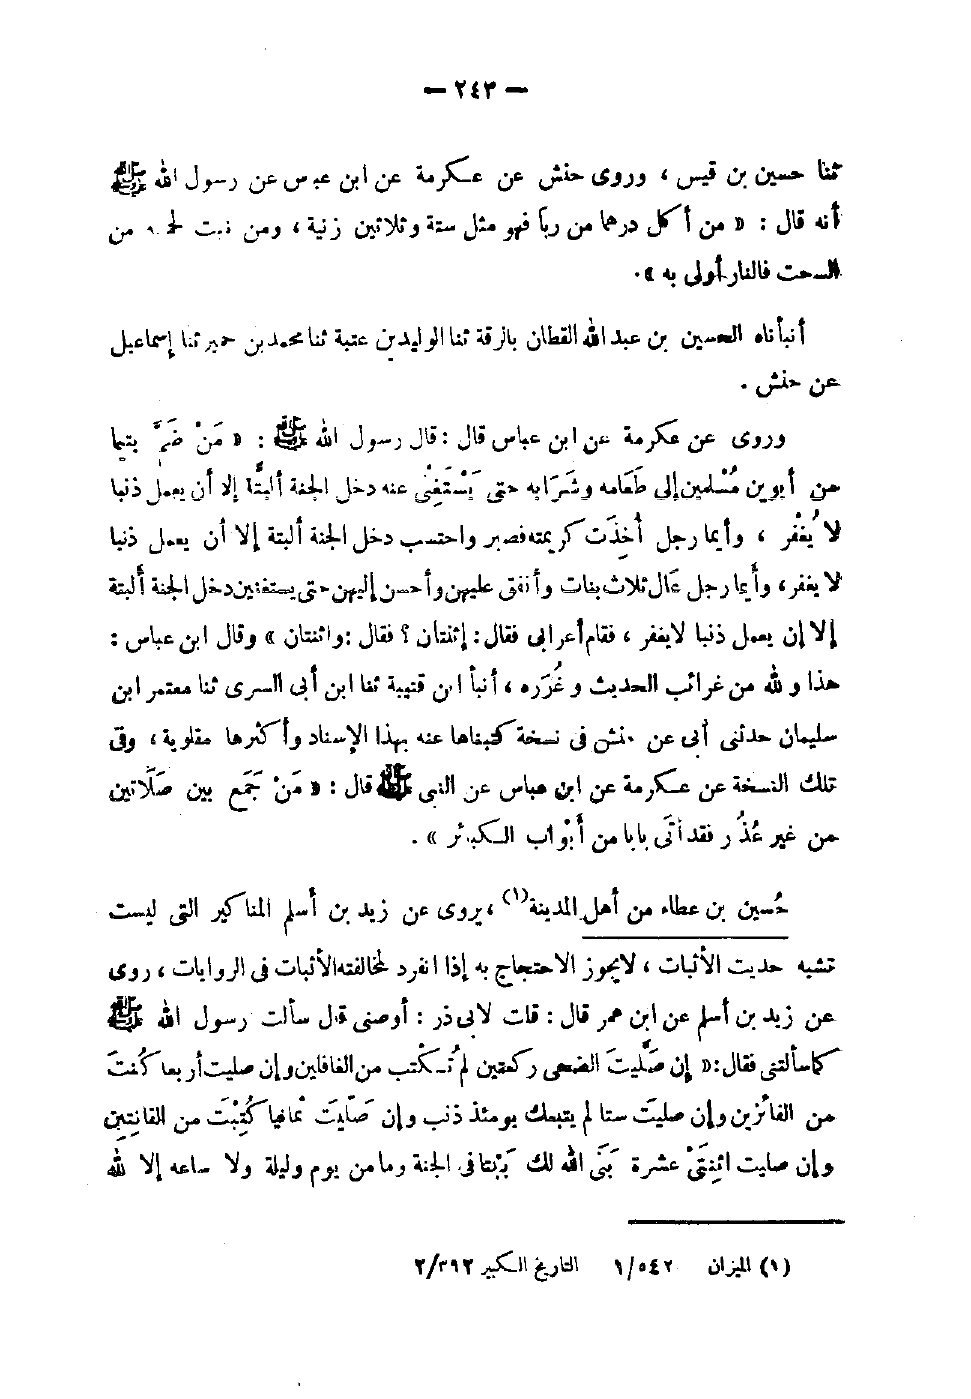 — ٢٤٣ —
ثنا حسين بن قيس ، وروى حنش عن عكرمة عن ابن عباس عن رسول الله ﷺ
أنه قال : « من أكل درهما من ربا فهو مثل ستة وثلاثين زنية ، ومن نبت لحمه من
السحت فالنار أولى به » .
أنبأناه الحسين بن عبد الله القطان بالرقة ثنا الوليد بن عتبة ثنا محمد بن حمير ثنا إسماعيل
عن حنش .
وروى عن عكرمة عن ابن عباس قال : قال رسول الله ﷺ : « مَنْ ضَمَّ يتيما
من أبوين مُسْلمين إلى طَعَامه وشَرَابه حتى يَسْتَغْنِى عنه دخل الجنة ألبتَّة إلا أن يعمل ذنبا
لا يُغْفر ، وأيما رجل أُخِذَت كريمته فصبر واحتسب دخل الجنة ألبتة إلا أن يعمل ذنبا
لا يغفر ، وأيما رجل عَال ثلاث بنات وأنفق عليهن وأحسن إليهن حتى يستغنين دخل الجنة ألبتة
إلا إن يعمل ذنبا لا يغفر ، فقام أعرابى فقال : إثنتان ؟ فقال : واثنتان » وقال ابن عباس :
هذا والله من غرائب الحديث وغُرَره ، أنبأ ابن قتيبة ثنا ابن أبى السرى ثنا معتمر ابن
سليمان حدثنى أبى عن حنش فى نسخة كتبناها عنه بهذا الإسناد وأكثرها مقلوبة ، وفى
تلك النسخة عن عكرمة عن ابن عباس عن النبى ﷺ قال : « مَنْ جَمَع بين صَلَاتين
من غير عُذْر فقد أتَى بابا من أَبْواب الكبائر » .
حُسين بن عطاء من أهل المدينة(١) ، يروى عن زيد بن أسلم المناكير التى ليست
تشبه حديث الأثبات ، لا يجوز الاحتجاج به إذا انفرد لمخالفته الأثبات فى الروايات ، روى
عن زيد بن أسلم عن ابن عمر قال : قلت لأبى ذر : أوصنى قال سألت رسول الله ﷺ
كما سألتنى فقال : « إن صَلَّيتَ الضحى ركعتين لم تُكْتب من الغافلين وإن صليت أربعا كُنتَ
من الفائزين وإن صليتَ ستا لم يتبعك يومئذ ذنب وإن صَلَّيتَ ثمانيا كُتِبْتَ من القانتِين
وإن صليت اثنِتَىْ عشرة بَنَى الله لك بَيْتا فى الجنة وما من يوم وليلة ولا ساعه إلا لله
(١) الميزان ١/٥٤٢ التاريخ الكبير ٢/٣٩٢